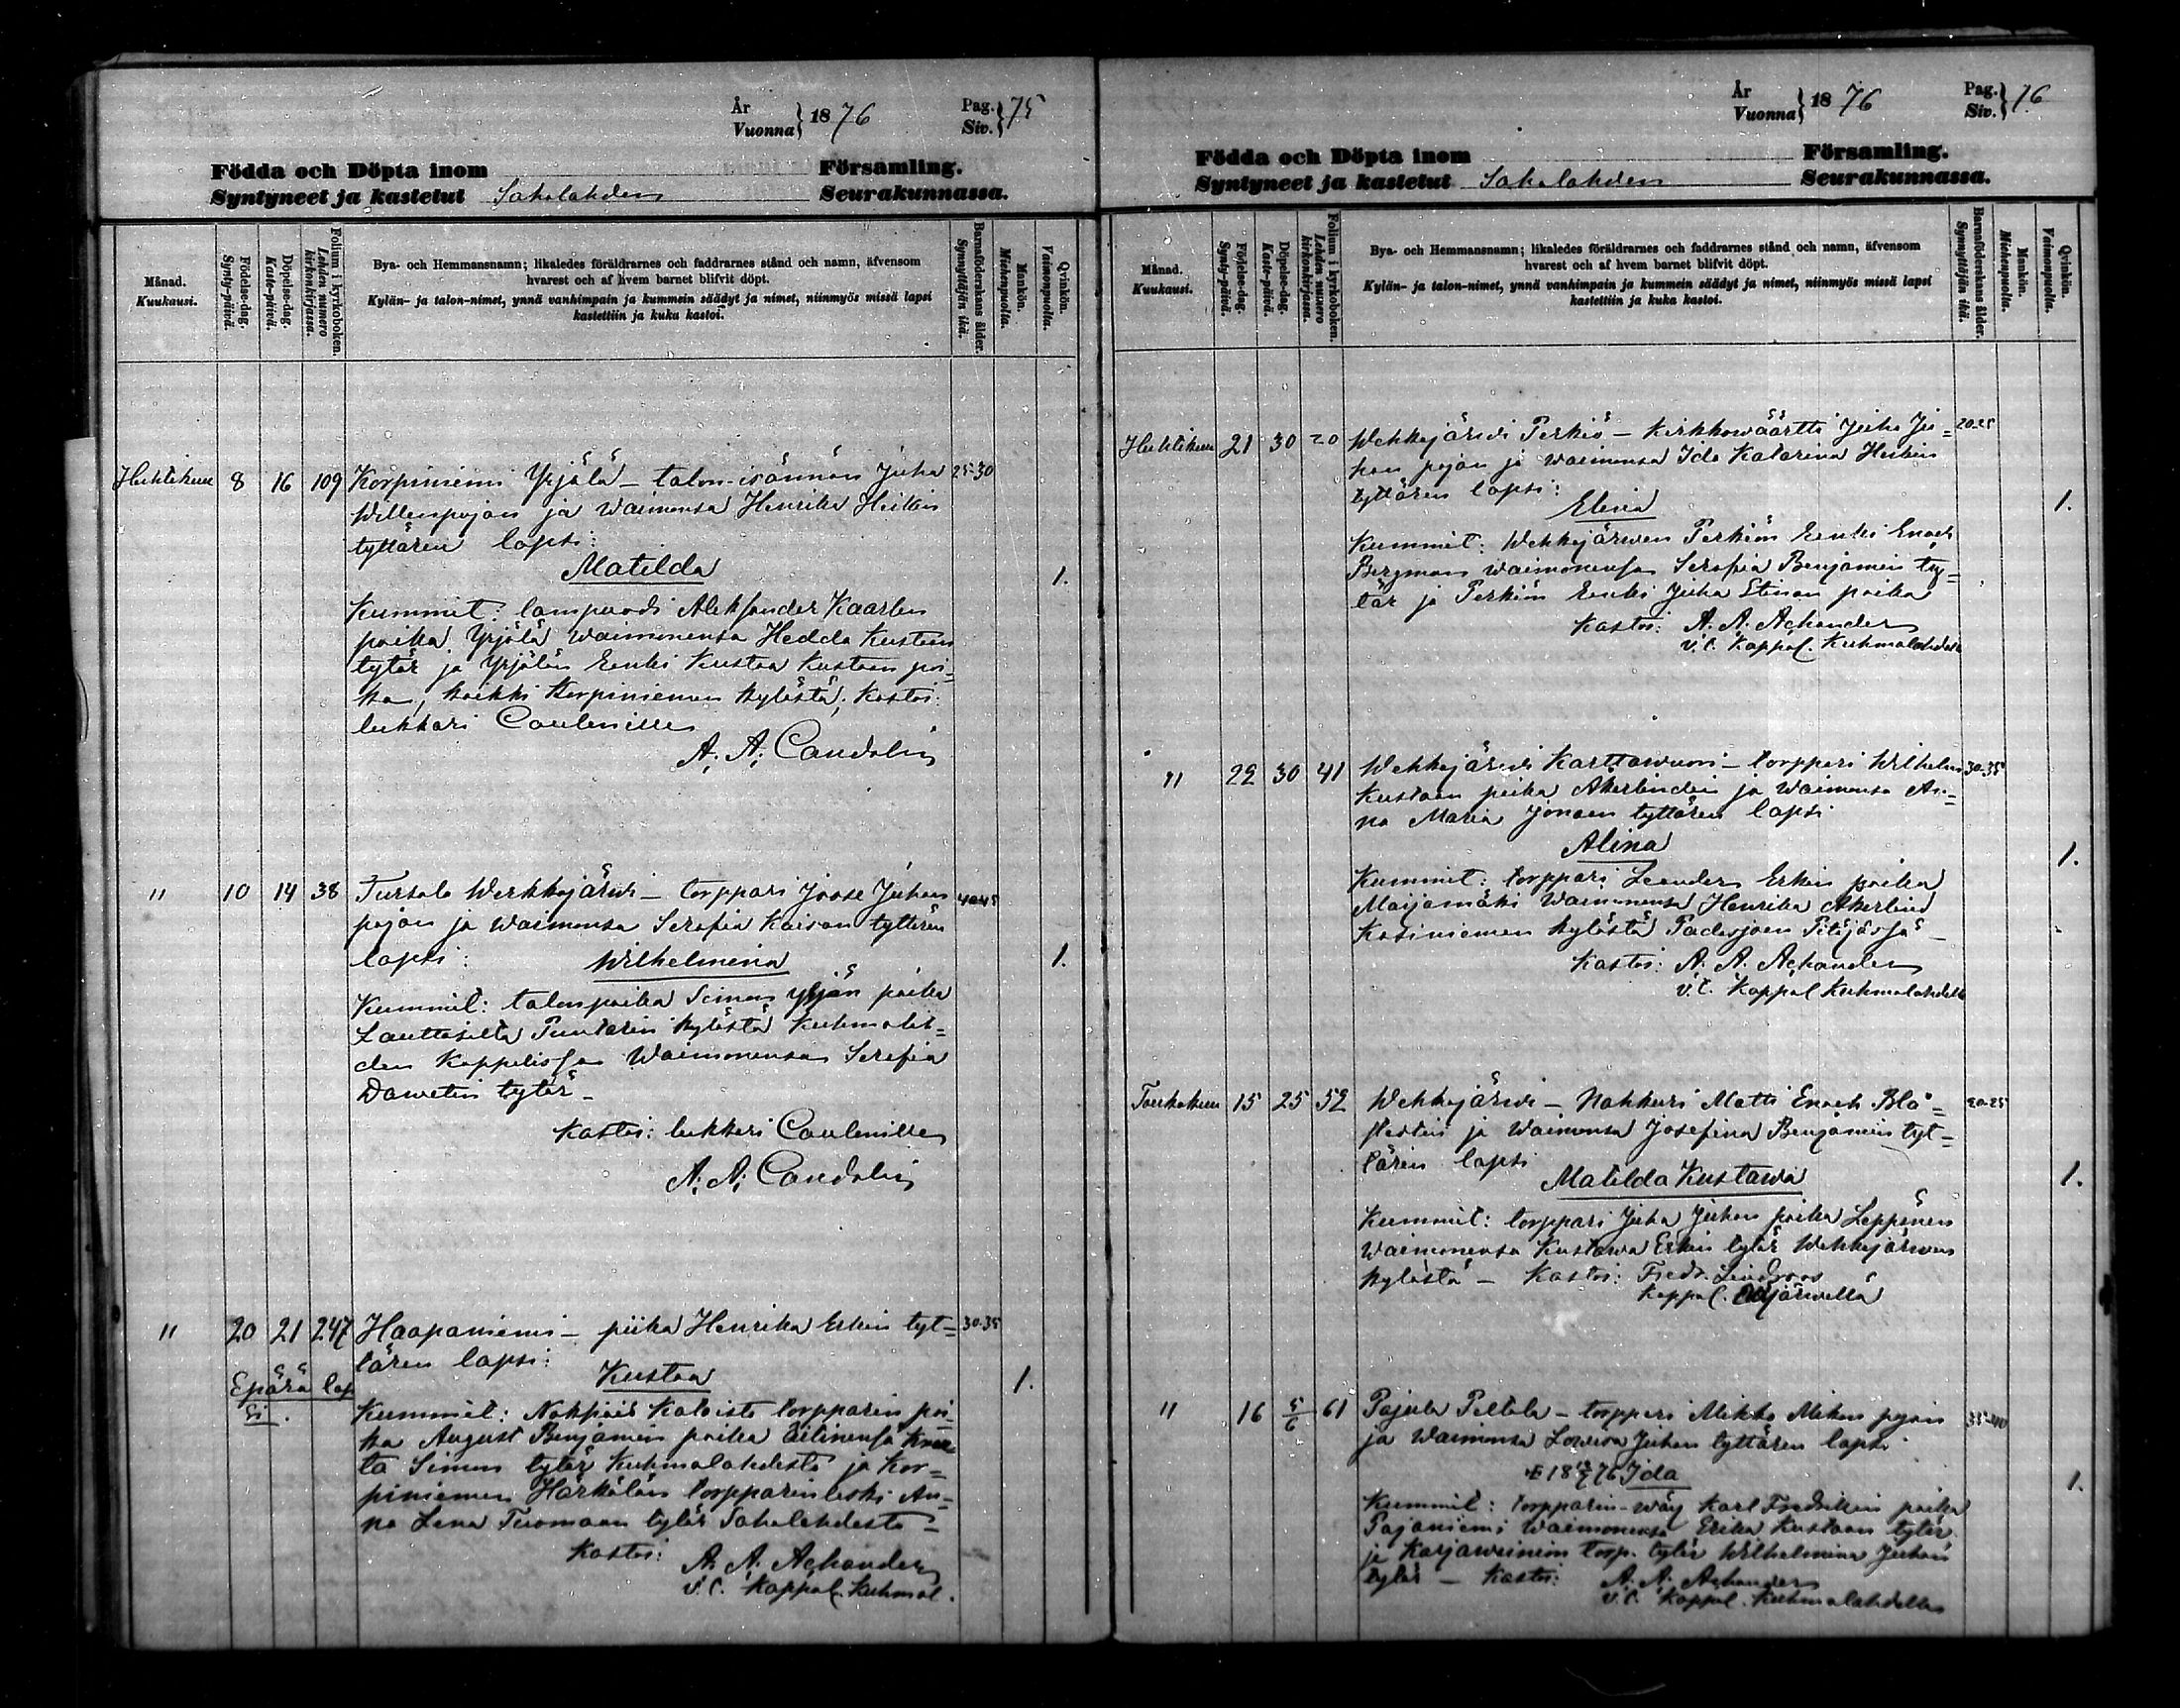 År
Vuonna } 1876 Pag.
Siv. } 75
Födda och Döpta inom Församling.
Syntyneet ja kastetut Sahalahden Seurakunnassa.
Månad.
Kuukausi.
Födelse-dag.
Synty-päivä.
Döpelse-dag.
Kaste-päivä.
Folium i kyrkoboken.
Lehden numero kirkonkirjassa.
Bya- och Hemmansnamn; likaledes föräldrarnes och faddrarnes stånd och namn, äfvensom
hvarest och af hvem barnet blifvit döpt.
Kylän- ja talon-nimet, ynnä vanhimpain ja kummein säädyt ja nimet, niinmyös missä lapsi
kastettiin ja kuka kastoi.
Barnaföderskans ålder.
Synnyttäjän ikä.
Mankön.
Miehenpuolta.
Qvinkön.
Vaimonpuolta.
Huhtikuu 8 16 109 Korpiniemi Yrjölä – talon-isännän Juha 25-30
Willenpojan ja waimonsa Henrika Heikin
tyttären lapsi:
Matilda 1.
Kummit: lampuodi Aleksander Kaarlen
poika Yrjölä waimonensa Hedda Kustaan
tytär ja Yrjölän Renki Kustaa Kustaan poi=
ka, kaikki Korpiniemen kylästä; Kastoi:
lukkari Caulenille
A. A. Candolin
" 10 14 38 Tursola Werkkojärwi – torppari Joose Juhan 40-45
pojan ja waimonsa Serafia Kaisan tyttären
lapsi: Wilhelmina 1.
Kummit: talonpoika Simon Yrjän poika
Lauttasilta Puntarin kylästä Kuhmalah=
den Kappelissa waimonensa Serafia
Dawetin tytär –
Kastoi: lukkari Caulenille
A. A. Candolin
" 20 21 247 Haapaniemi – piika Henrika Erkin tyt= 30-35
tären lapsi:
Epärä lap
si. Kustaa 1.
Kummit: Kaloista torpparin poi=
ka August Benjamin poika äitinensä
ta Simon tytär Kuhmalahdesta ja Kor=
piniemen Härkälän torpparinleski An=
na Lena Tuomaan tytär Sahalahdesta –
Kastoi: A. A. Achander
v. t. Kappal. Kuhmal.
År
Vuonna } 1876 Pag.
Siv. } 76
Födda och Döpta inom Församling.
Syntyneet ja kastetut Sahalahden Seurakunnassa.
Månad.
Kuukausi.
Födelse-dag.
Synty-päivä.
Döpelse-dag.
Kaste-päivä.
Folium i kyrkoboken.
Lehden numero kirkonkirjassa.
Bya- och Hemmansnamn; likaledes föräldrarnes och faddrarnes stånd och namn, äfvensom
hvarest och af hvem barnet blifvit döpt.
Kylän- ja talon-nimet, ynnä vanhimpain ja kummein säädyt ja nimet, niinmyös missä lapsi
kastettiin ja kuka kastoi.
Barnaföderskans ålder.
Synnyttäjän ikä.
Mankön.
Miehenpuolta.
Qvinkön.
Vaimonpuolta.
Huhtikuu 21 30 20 Wehkajärwi Perkiö – Kirkkowäärtti Juha Ju= 20-25
han pojan ja waimonsa Ida Katarina Heikin
tyttären lapsi:
Elina 1.
Kummit: Wehkajärwen Perkiön Renki Enoch
Bergman waimonensa Serafia Benjamin ty=
tär ja Perkiön Renki Juha Stinan poika
Kastoi: A. A. Achander
v. t. Kappal. Kuhmalahdella
" 22 30 41 Wehkajärwi Karttawuori – torppari Wilhelm 30-35
Kustaan poika Akerlindin ja waimonsa An=
na Maria Jonaan tyttären lapsi
Alina 1.
Kummit: torppari Leander Erkin poika
Maijamäki waimonensa Henrika Akerlind
Kasiniemen kylästä Padasjoen Pitäjässä –
Kastoi: A. A. Achander
v. t. Kappal Kuhmalahdella
Toukokuu 15 25 52 Wehkajärwi – Nahkuri Matti Enoch Blå= 20-25
fieldin ja waimonsa Josefina Benjamin tyt=
tären lapsi
Matilda Kustawa 1.
Kummit: torppari Juha Juhan poika Leppänen
waimonensa Kustawa Erkin tytär Wehkajärwen
kylästä – Kastoi: Fredr. Lindroos
Kappal.
" 16 5/6 61 Pajula Peltola – torppari Mikko Mikon pojan 35-40
ja waimonsa Lowisa Juhan tyttären lapsi
Ida 1.
Kummit: torpparin-wäy Karl Fredrikin poika
Pajaniemi waimonensa Erika Kustaan tytär
ja torp. tytär Wilhelmina Juhan
tytär – Kastoi: A. A. Achander
v. t. Kappal. Kuhmalahdella